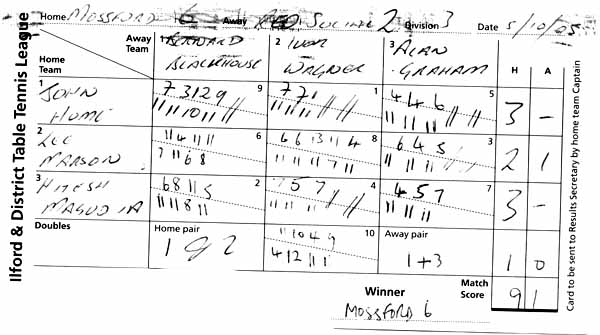 Home MOSSFORD 6 Away SOCIAL 2 Division 3 Date 5/10/05
Ilford & District Table Tennis League
Away Team
Home Team
1 BERNARD BLACKHOUSE
2 IVOR WAGNER
3 ALAN GRAHAM
H A
1 JOHN HOME
9 7 3 12 9
11 11 10 11 //
1 7 7 1
11 11 11 //
5 4 4 6
11 11 11 //
3 -
2 LEE MARSON
6 11 4 11 11
7 11 6 8
8 6 6 13 11 4
11 11 11 7 11
3 6 4 5
11 11 11
2 1
3 HITESH MAGUDIA
2 6 8 11 5
11 11 8 11
4 5 7
11 11 11
7 4 5 7
11 11 11
3 -
Doubles
Home pair
1 & 2
10 11 10 4 9
4 12 11 11
Away pair
1+3
1 0
Winner
MOSSFORD 6
Match Score
9 1
Card to be sent to Results Secretary by home team Captain